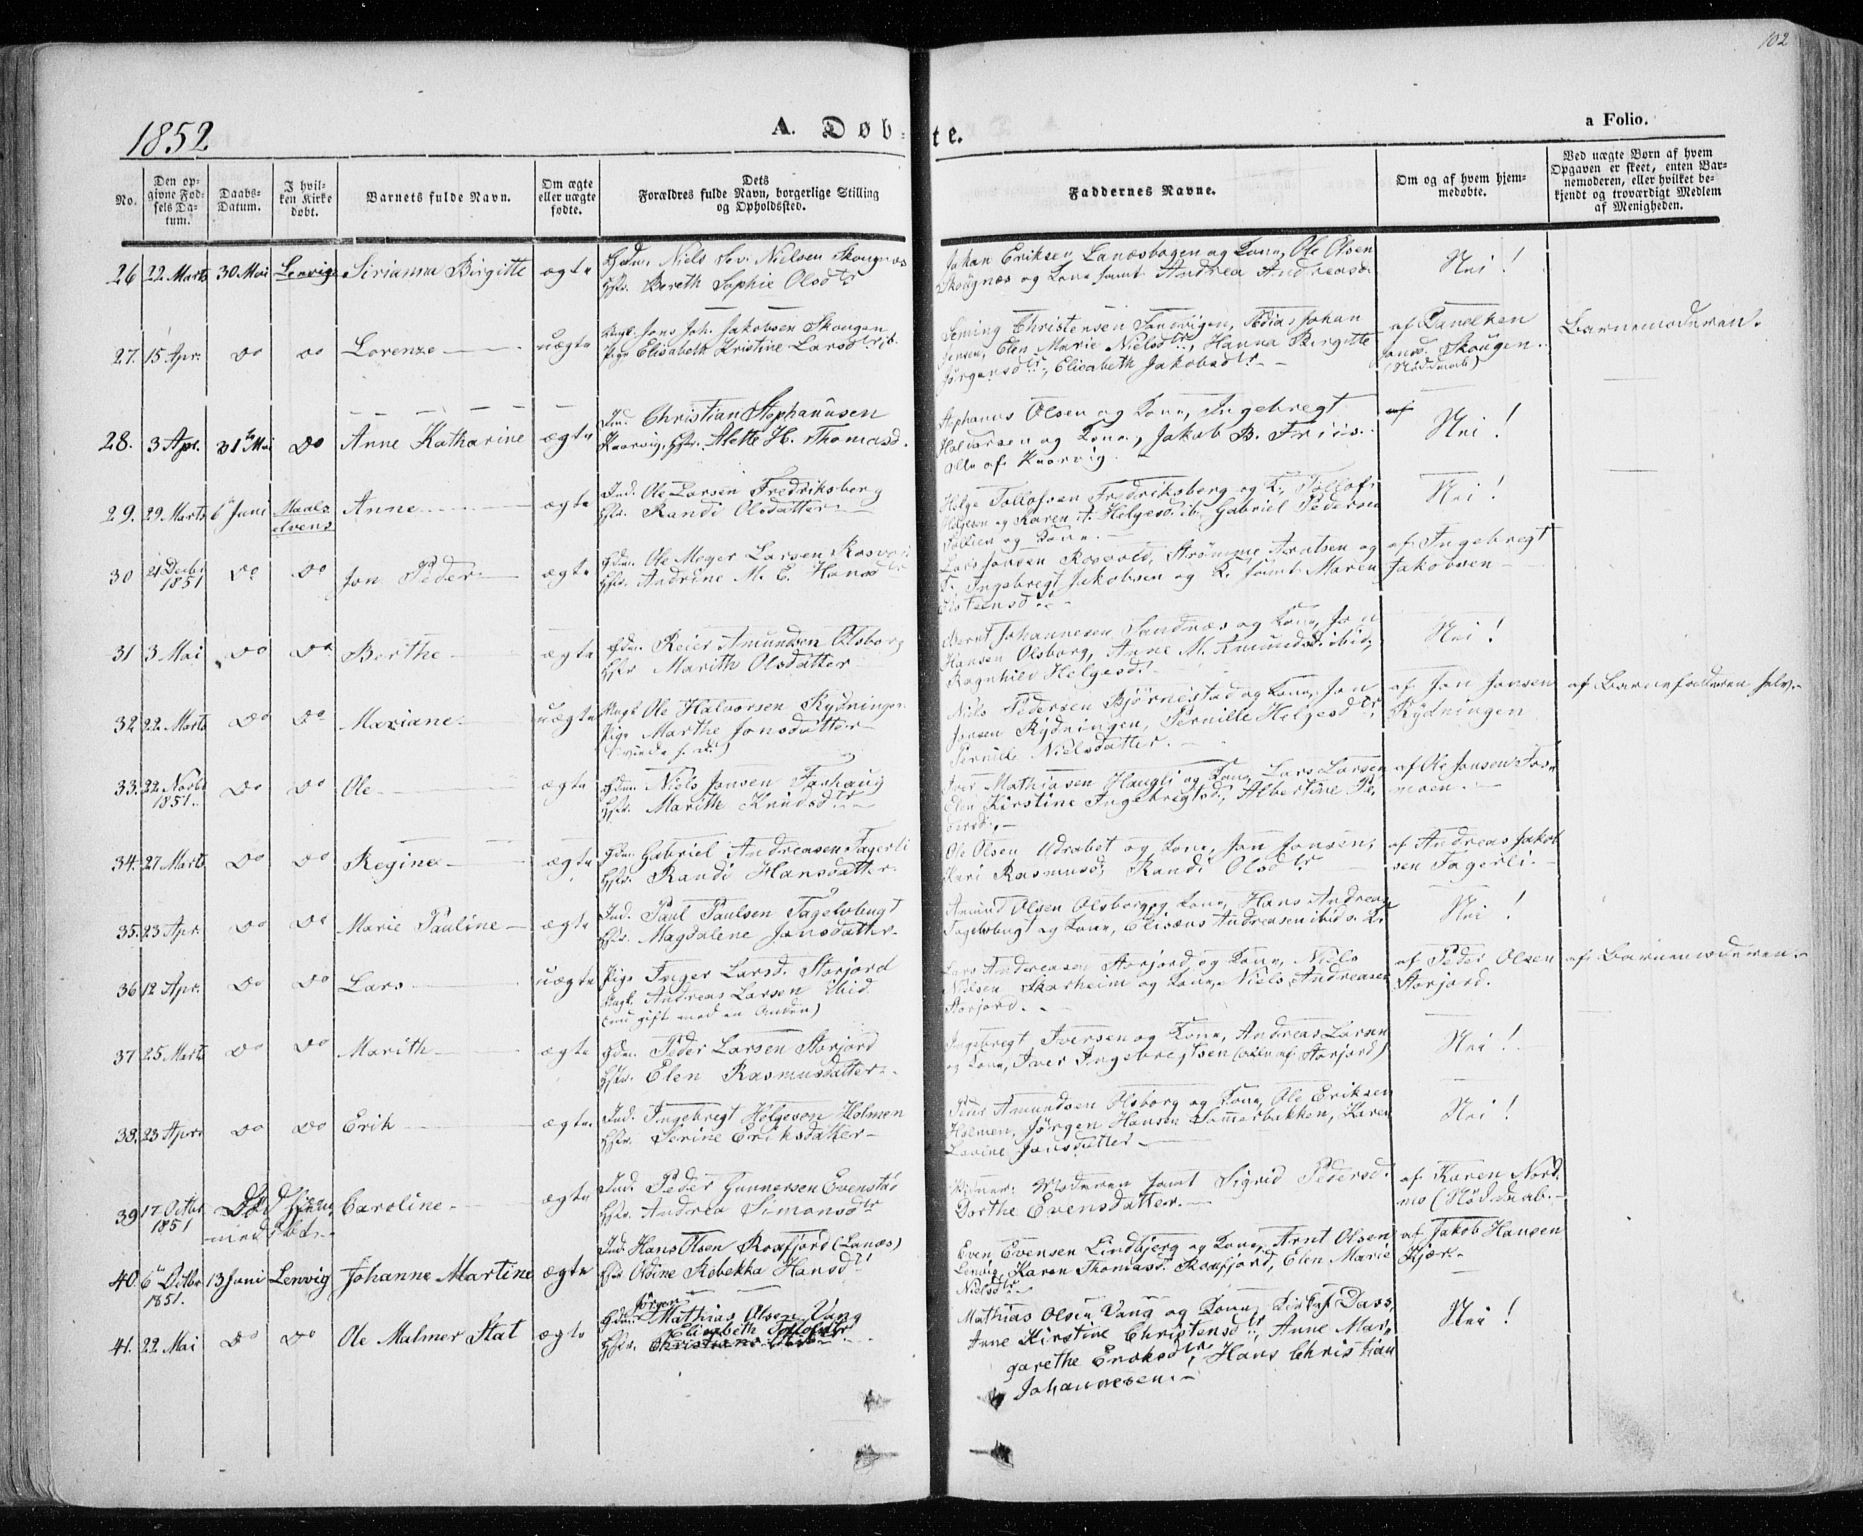 102
1852
A. Døb-
te.
a Folio.
No.
Den op-
givne Fød-
sels Da-
tum.
Daabs-
Datum.
I hvil-
ken Kirke
døbt.
Barnets fulde Navn.
Om ægte
eller uægte
fødte.
Dets
Forældres fulde Navn, borgerlige Stilling
og Opholdssted.
Faddernes Navne.
Om og af hvem hjem-
medøbte.
Ved uægte Børn af hvem
Opgaven er skeet, enten Bar-
nemoderen, eller hvilket be-
kjendt og troværdigt Medlem
af Menigheden.
26 22 Marts 30 Mai Lenvig Sirianna Birgitte ægte
Niels Nielsen Skougnæs
Hstr. Bereth Sophie Olsdtr
Johan Eriksen Lanæsbogen og Kone, Ole Olsen
Skougnæs og Kone samt Andrea Andreasd.
Nei!
27. 15 Apr. Do Do Lorenze uægte
Ungk. Jens Joh. Jakobsen Skougen
Pige Elisabeth Kristine Larsdtr ib.
Christensen Johan
Jensen, Elen Marie Nielsdtr, Hanna Birgitte
Jørgensdtr, Elisabeth Jakobsdtr
af
Skougen.
Barnemoderen.
28. 3 Apr. 31te Mai Do Anne Katharine ægte
Ind. Christian Stephanusen
Kaarvig, Hstr. Alette H. Thomasd.
Stephanus Olsen og Kone, Ingebregt
Halvorsen og Kone, Jakob B. Friis.
Alle af Kaarvig.
Nei!
29. 29 Marts 6 Juni Maals-
elvens
Anne ægte
Ind. Ole Larsen Fredriksberg
Hstr. Randi Olsdatter
Helge Tollofsen Fredriksberg og K., Tollof
Helgesen og Karen A. Helgesd. ib. Gabriel Pedersen
og Kone.
Nei!
30 21 Decbr
1851
Do Do Jon Peder ægte
Gdm. Ole Meyer Larsen Rosvold
Hstr. Andrine M. E. Hansdtr
Lars Jonsen Rosvold, Strømme Arntsen og
K. Ingebregt Jakobsen og K. samt Maren
Osteensd.
af Ingebregt
Jakobsen
31 3 Mai Do Do Berthe ægte
Gdm. Reier Amundsen Olsborg
Hstr Marith Olsdatter
Bernt Johannesen Sandnæs og Kone, Jon
Hansen Olsborg, Anne M. Amundsd. ibid,
Ragnhild Helgesd.
Nei!
32 22 Marts Do Do Mariane uægte
Ungk. Ole Halvorsen Rydningen
Pige Marthe Jonsdatter
Niels Pedersen Bjørnestad og Kone, Jon
Jonsen Rydningen, Pernille Helgesdtr,
Pernille Nielsdatter.
af Jon Jonsen
Rydningen
af Barnefaderen selv.
33. 22 Novbr
1851.
Do Do Ole ægte
Gdm. Niels Jonsen Foshaug
Hstr. Marith Knudsdtr
Iver Mathiasen Haugli og Kone, Lars Larsen
Elen Kirstine Ingebrigtsd., Albertine Pe-
dersd.
af Ole Jonsen Fos-
moen.
34. 27 Marts Do Do Regine ægte
Gdm. Gabriel Andreasen Fagerli
Hstr. Randi Hansdatter
Ole Olsen Udrabet og Kone, Jon Jonsen,
Kari Rasmusd, Randi Olsdtr
af Andreas Jakob-
sen Fagerli.
35. 23 Apr. Do Do Marie Pauline ægte
Ind. Paul Paulsen Fagelvbugt
Hstr. Magdalene Jonsdatter
Amund Olsen Olsborg og Kone, Hans Andreas
Fagelvbugt og Kone, Elisæus Andreasen ibid o. K.
Nei!
36 12 Apr. Do Do Lars uægte
Pige Inger Larsd. Storjord
Ungk. Andreas Larsen ibid
(nu gift med en Anden)
Lars Andreasen Storjord og Kone, Niels
Nilsen Skarheim og Kone, Niels Andreasen
Storjord.
af Peder Olsen
Storjord.
af Barnemoderen.
37 25 Marts Do Do Marith ægte
Gdm. Peder Larsen Storjord
Hstr. Elen Rasmusdatter
Ingebregt Iversen og Kone, Andreas Larsen
og Kone, Iver Ingebregtsen (alle af Storjord)
Nei!
38. 23 Apr. Do Do Erik ægte
Ind. Ingebregt Helgesen Holmen
Hstr. Serine Eriksdatter
Peder Amundsen Olsborg og Kone, Ole Eriksen
Holmen, Jørgen Hansen Sommerbakken, Karen
Lovine Jonsdatter
Nei!
39 17 Octbr
1851
Død hjem-
medøbt
Caroline ægte
Ind. Peder Gunnersen Evenstad
Hstr. Andrea Simonsdtr
Moderen samt Sigrid Pedersd.
Dorthe Evensdatter.
af Karen Nord-
mo (Nødsdaab.
40. 6 Octbr
1851.
13 Juni Lenvig Johanne Martine ægte
Ind. Hans Olsen Roxfjord (Lanæs)
Hstr Oldine Rebekka Hansdtr
Even Evensen Lindbjerg og Kone, Arnt Olsen
Lenvig, Karen Thomasd. Roxfjord, Elen Marie
Nielsdtr.
af Jakob Hansen
Kjær
41. 22 Mai Do Do Ole Malmer Stat ægte
Jørgen
Gdm. Mathias Olsen Vang
Elisabeth Tollefsdtr
Hstr. Christiane
Mathias Olsen Vang og Kone, Dass,
Anne Kirstine Christensdtr, Anne Mar-
garethe Eriksdtr, Hans Christian
Johannesen.
Nei!